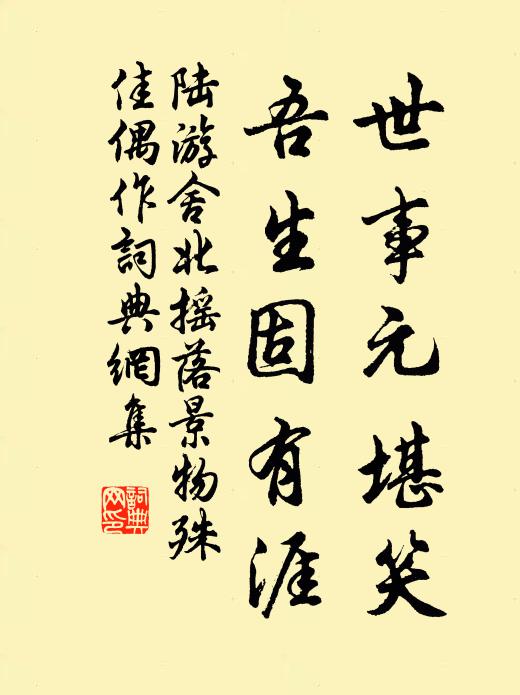 世事元堪笑
吾生固有涯
陆游舍北摇落景物殊
佳偶作詞典網集
詞典
网印